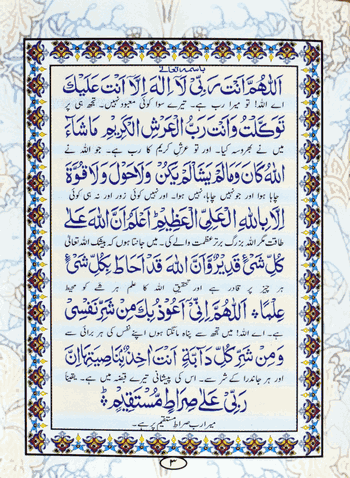 باسمہ تعالیٰ
اَللّٰهُمَّ اَنْتَ رَبِّیْ لَآ اِلٰهَ اِلَّآ اَنْتَ عَلَیْكَ
اے اللہ! تو میرا رب ہے۔ تیرے سوا کوئی معبود نہیں۔ تجھ ہی پر
تَوَكَّلْتُ وَاَنْتَ رَبُّ الْعَرْشِ الْكَرِیْمِ مَاشَآءَ
میں نے بھروسہ کیا۔ اور تو عرش کریم کا رب ہے۔ جو اللہ نے
اللهُ كَانَ وَمَالَمْ یَشَأْلَمْ یَكُنْ وَلَاحَوْلَ وَلَا قُوَّةَ
چاہا ہوا اور جو نہیں چاہا، نہیں ہوا۔ اور نہیں کوئی زور اور نہ ہی کوئی
اِلَّا بِاللهِ الْعَلِیِّ الْعَظِیْمِ اَعْلَمُ اَنَّ اللهَ عَلٰی
طاقت مگر اللہ بزرگ برتر عظمت والے کی۔ میں جانتا ہوں کہ بیشک اللہ تعالیٰ
كُلِّ شَیْءٍ قَدِیْرٌ وَّاَنَّ اللهَ قَدْ اَحَاطَ بِكُلِّ شَیْءٍ
ہر چیز پر قادر ہے اور تحقیق اللہ کا علم ہر شے کو محیط
عِلْمًا اَللّٰهُمَّ اِنِّیْ اَعُوْذُ بِكَ مِنْ شَرِّ نَفْسِیْ
ہے۔ اے اللہ! میں تجھ سے پناہ مانگتا ہوں اپنے نفس کی ہر برائی سے
وَمِنْ شَرِّ كُلِّ دَآبَّةٍ اَنْتَ اٰخِذٌۢ بِنَاصِیَتِهَا اِنَّ
اور ہر جاندار کے شر سے۔ اس کی پیشانی تیرے قبضہ میں ہے۔ یقینا
رَبِّیْ عَلٰی صِرَاطٍ مُّسْتَقِیْمٍ
میرا رب صراط مستقیم پر ہے۔
۳